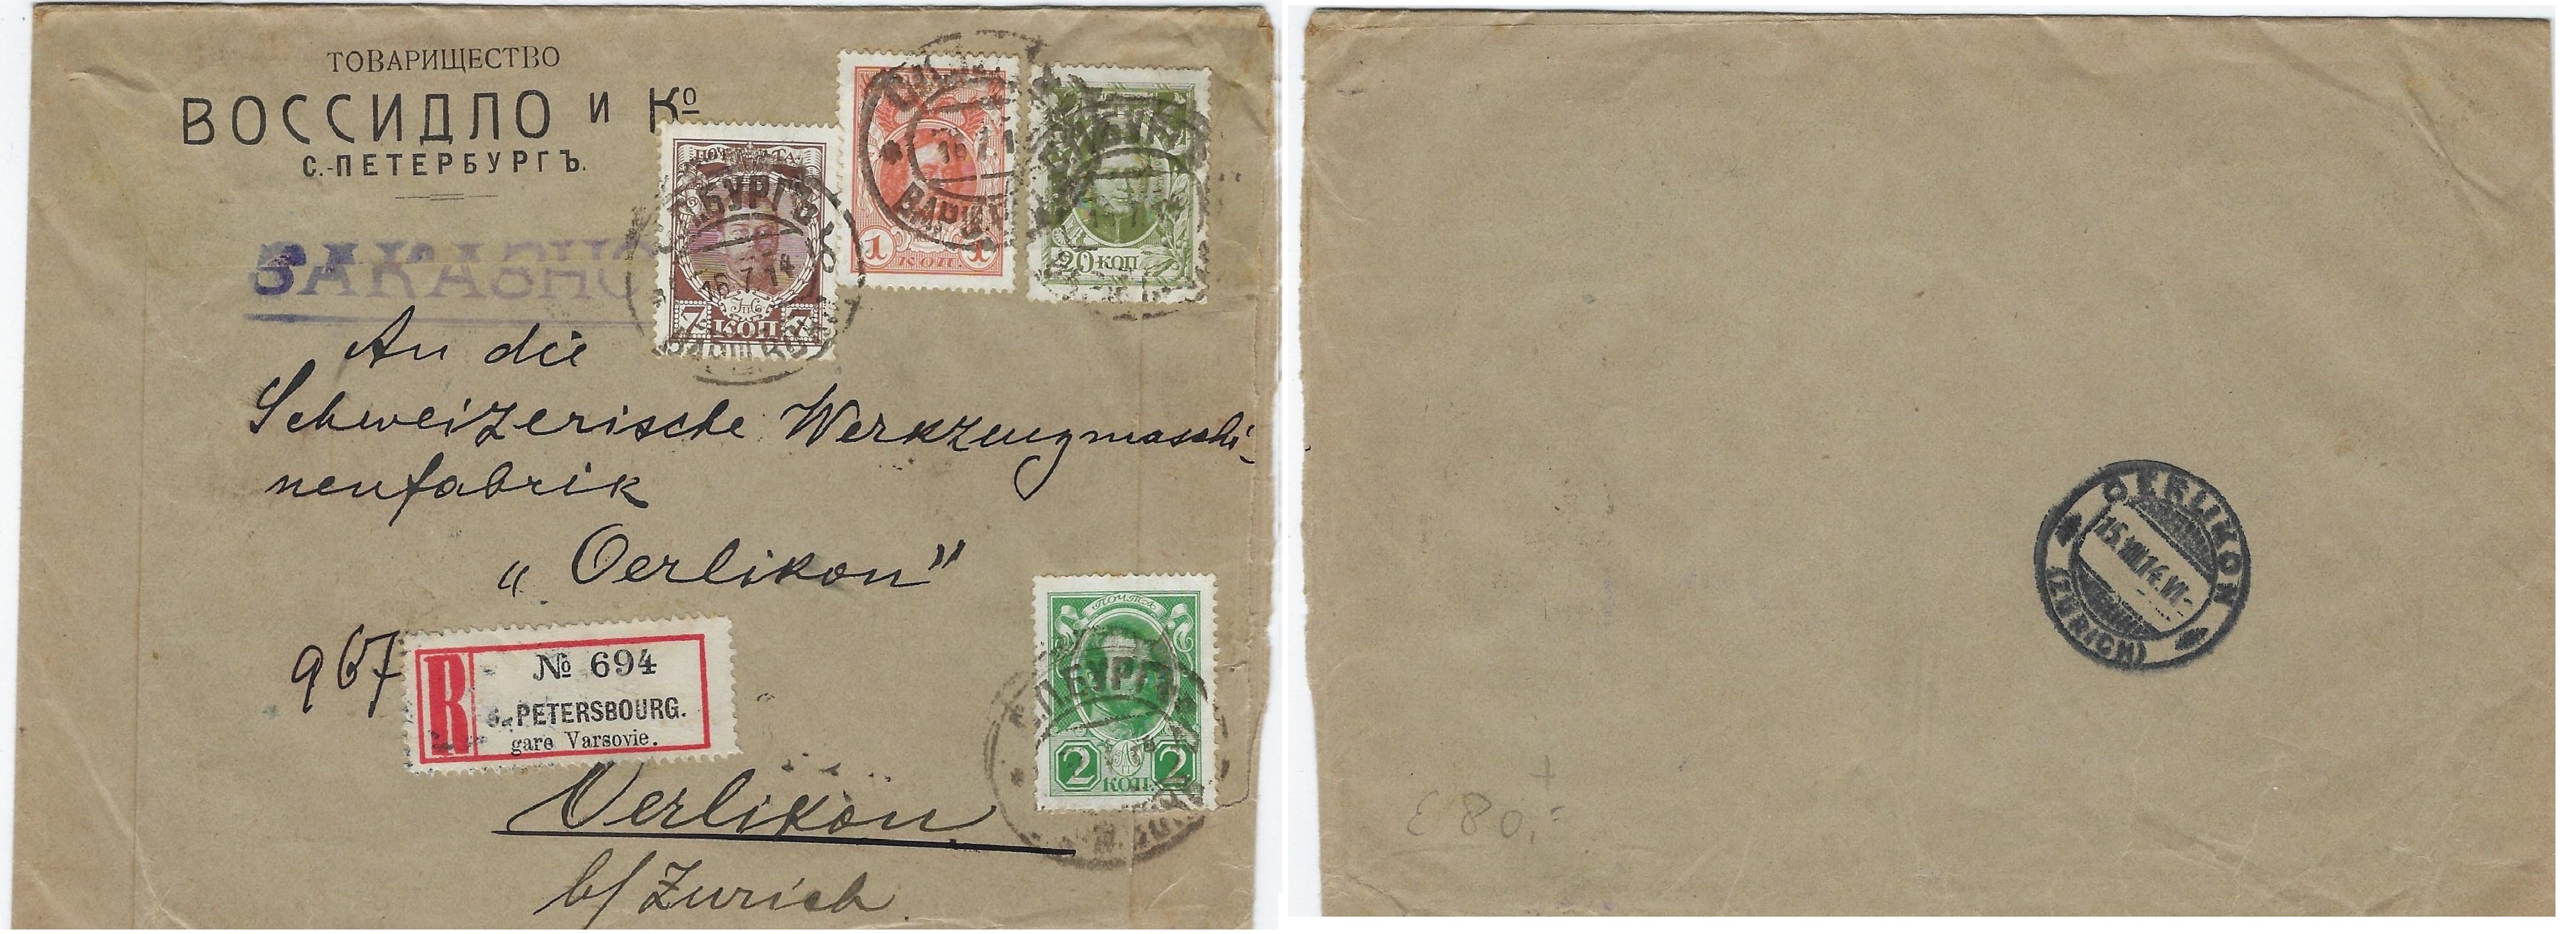 ТОВАРИЩЕСТВО
ВОССИДЛО И Кº
С.-ПЕТЕРБУРГЪ.
ЗАКАЗНО
ПОЧТА
7 КОП 7
16 7 14
1 КОП. 1
20 КОП
An die
Schweizerische Werkzeugmaschi-
nenfabrik
„Oerlikon"
967
R
№ 694
PETERSBOURG.
gare Varsovie.
ПОЧТА
2 КОП. 2
Oerlikon
b/ Zürich
OERLIKON
15.VIII.14.VI-
(ZÜRICH)
£ 80.=